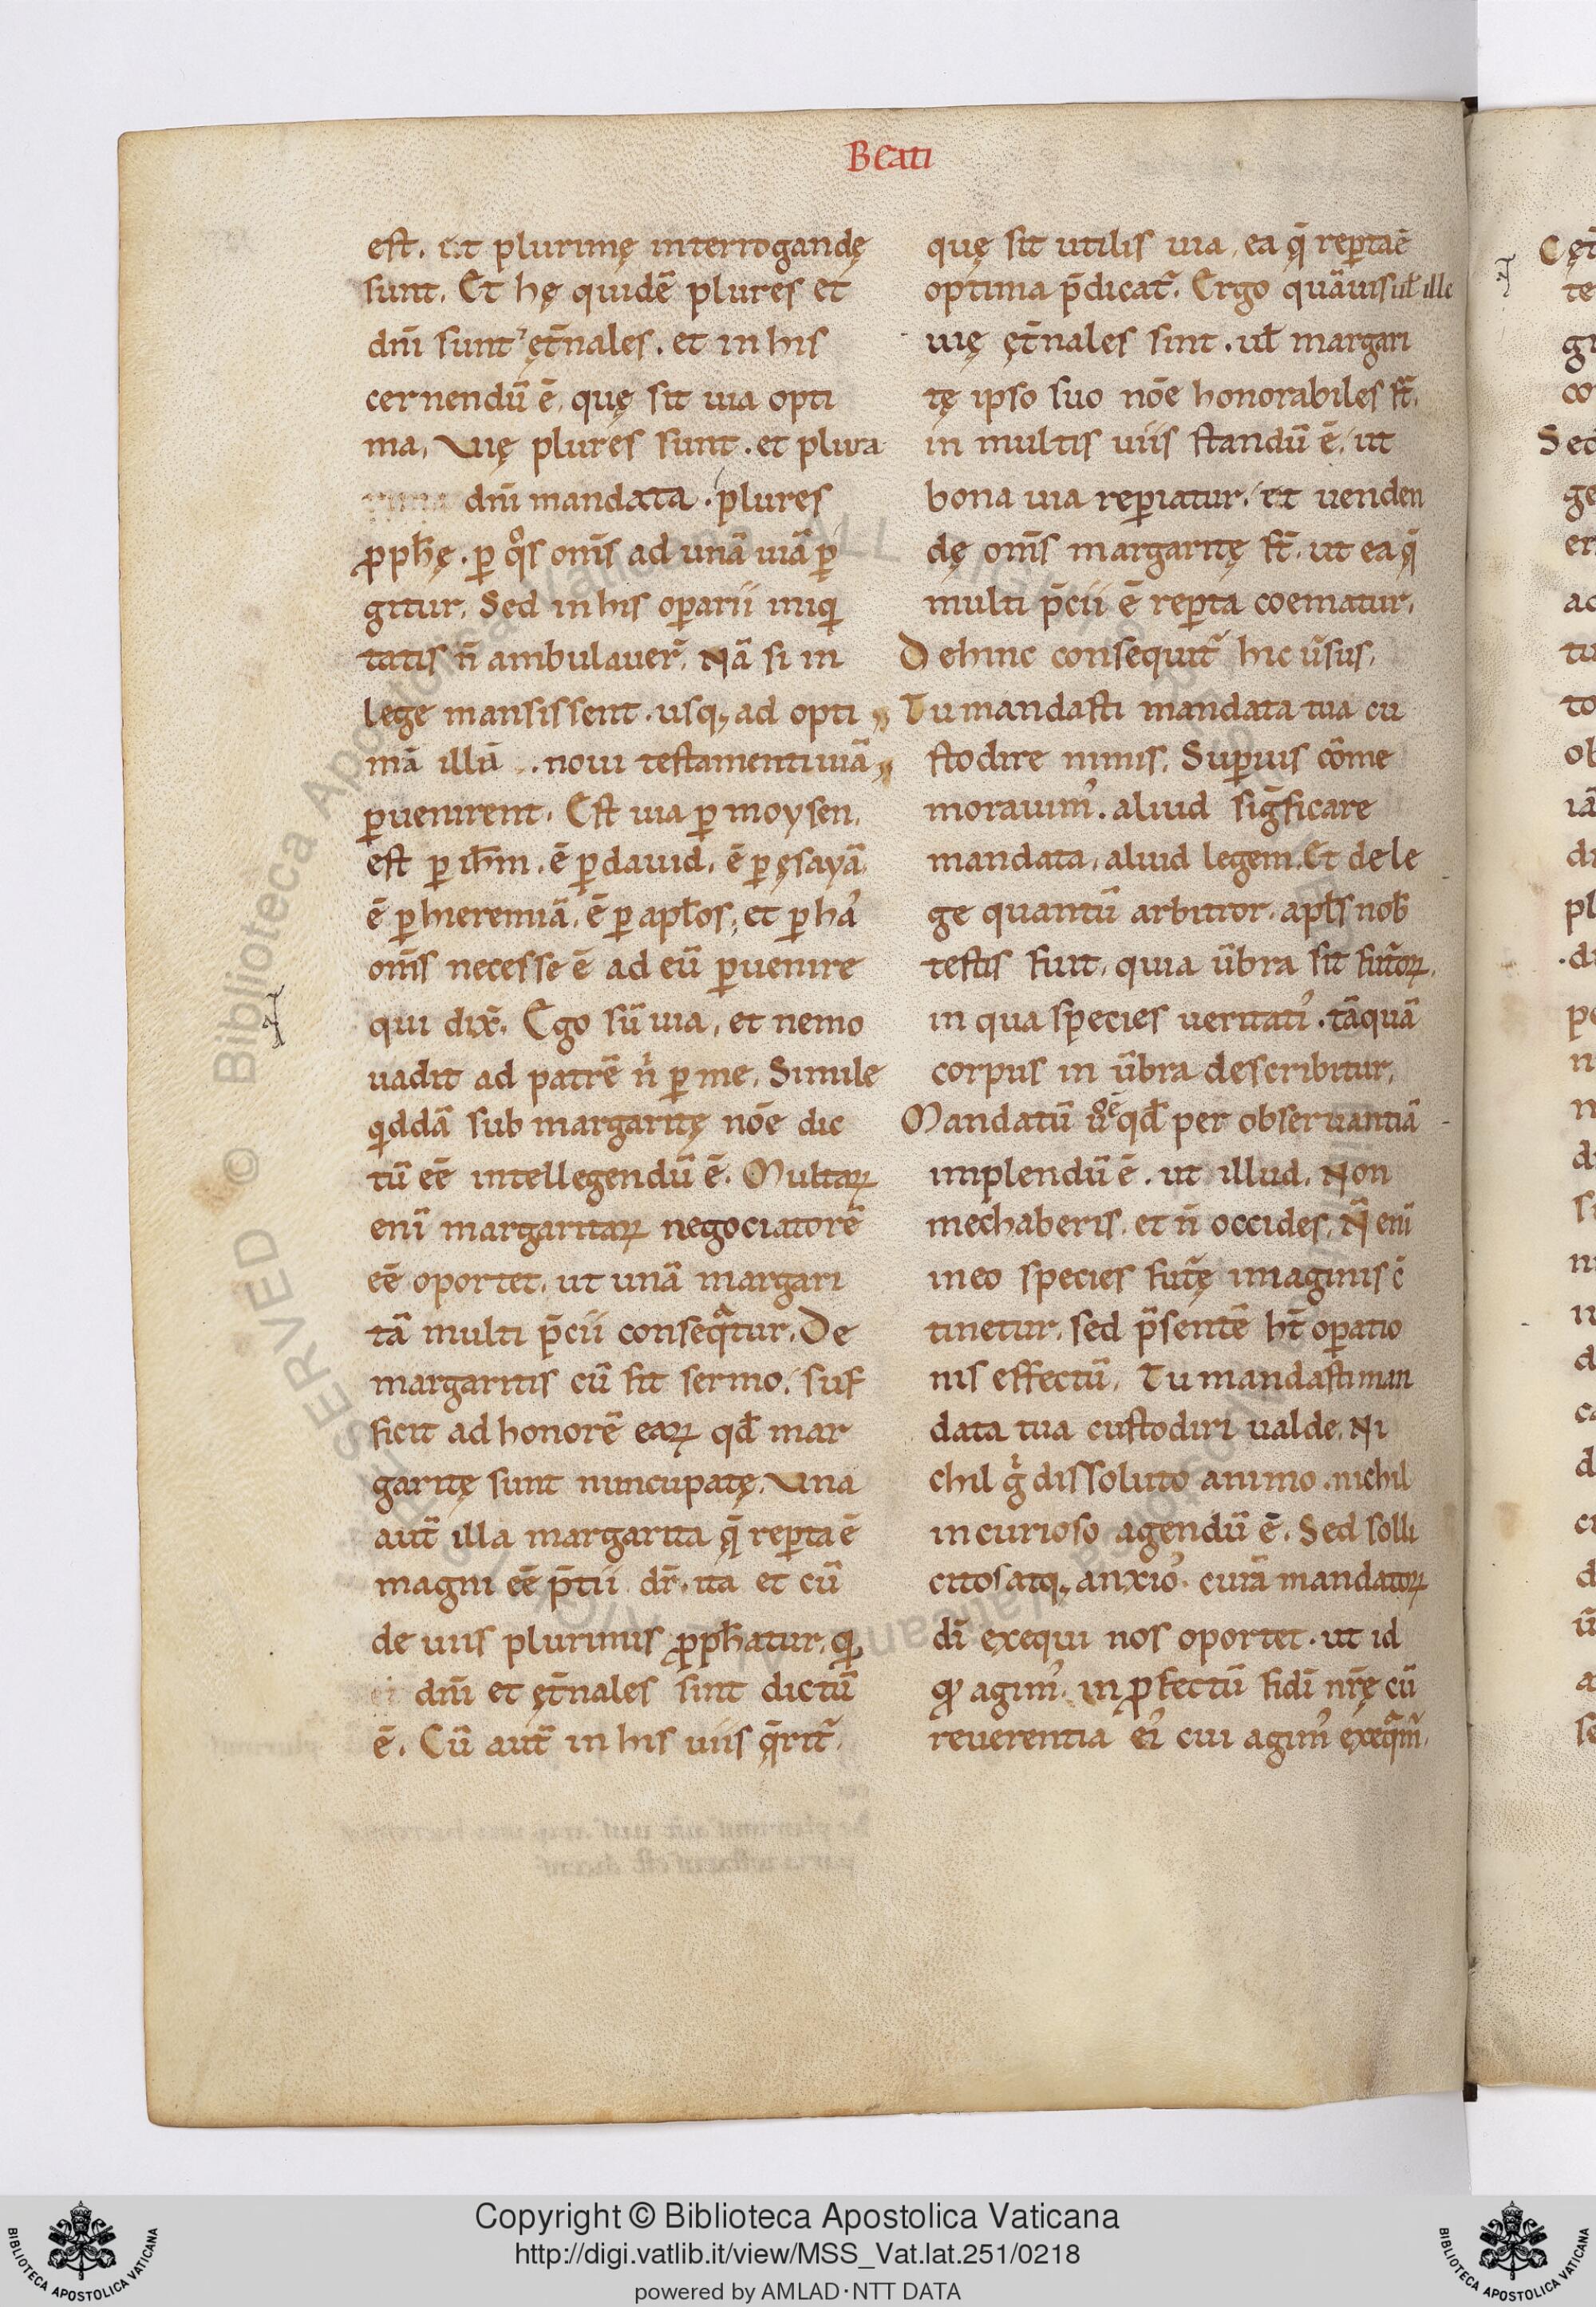 Beati
est. et plurimę interrogandę
sunt. Et hę quidē plures et
dn̄i sunt ęt̄nales. et in his
cernendū ē, quę sit uia opti
ma, Vię plures sunt. et plura
dn̄i mandata. plures
ꝓph̄ę. ꝑ qͦs om̄s ad unā uiā ꝑ
gitur, Sed in his oꝑarii iniqi
tatis n̄ ambulauer̄, Nā si in
lege mansissent. usq, ad opti
mā illā . noui testamenti uiā
ꝑuenirent. Est uia ꝑ moysen,
est ꝑ ih̄m. ē ꝑ dauid, ē ꝑ ęsayā,
ē ꝑ hieremiā, ē ꝑ apl̄os, et ꝑ ha᾽
om̄s necesse ē ad eū ꝑuenire
qui dix̄. Ego sū uia, et nemo
uadit ad patrē nͥ ꝑ me, Simile
qiddā sub margaritę nōe dic
tū eē intellegendū ē. Multaꝝ
enī margaritaꝝ negociatorē
eē oportet, ut unā margari
tā multi p̄cii conseqᵃtur, De
margaritis cū sit sermo, suf
ficit ad honorē eaꝝ qd̄ mar
garitę sunt nuncupatę, Vna
aut̄ illa margarita q̄ reꝑta ē
magni eē p̄tii dr̄. ita et cū
de uiis plurimis ꝓph̄atur, qi
ei dn̄i et ęt̄nales sint dictū
ē. Cū aut̄ in his uiis q̄rit̄,
quę sit utilis uia, ea q̄ reꝑta ē
optima p̄dicat̄. Ergo quāuis ul̄ ille
uię ęt̄nales sint. ul̄ margari
tę ipso suo nōe honorabiles st̄,
in multis uiis standū ē, ut
bona uia reꝑiatur, et uenden
dę om̄s margaritę st̄, ut ea q̄
multi p̄cii ē reꝑta coematur,
Dehinc consequit̄ hic ūsus,
Tu mandasti mandata tua cu
stodire nimis, Suꝑius cōme
morauim᾽. aliud siḡficare
mandata, aliud legem. Et de le
ge quantū arbitror. apl̄s nob̄
testis fuit, quia ūbra sit fut̄oꝝ,
in qua species ueritati᾽. tāquā
corpus in ūbra describitur,
Mandatū ůº ē qd̄ per obseruantiā
implendū ē. ut illud, Non
mechaberis, et n̄ occides, N̄ enī
in eo species fut̄ę imaginis c̄
tinetur, sed p̄sentē ht̄ oꝑatio
nis effectū, Tu mandasti man
data tua custodiri ualde, Ni
chil gͥ dissoluto animo. nichil
incurioso agendū ē. Sed solli
citos atq, anxio᾽. curā mandatoꝝ
dī exequi nos oportet. ut id
qͦ agim᾽. in ꝓfectū fidī nr̄ę cū
reuerentia ei᾽ cui agim᾽ exeqᵃm᾽,
Copyright © Biblioteca Apostolica Vaticana
http://digi.vatlib.it/view/MSS_Vat.lat.251/0218
powered by AMLAD·NTT DATA